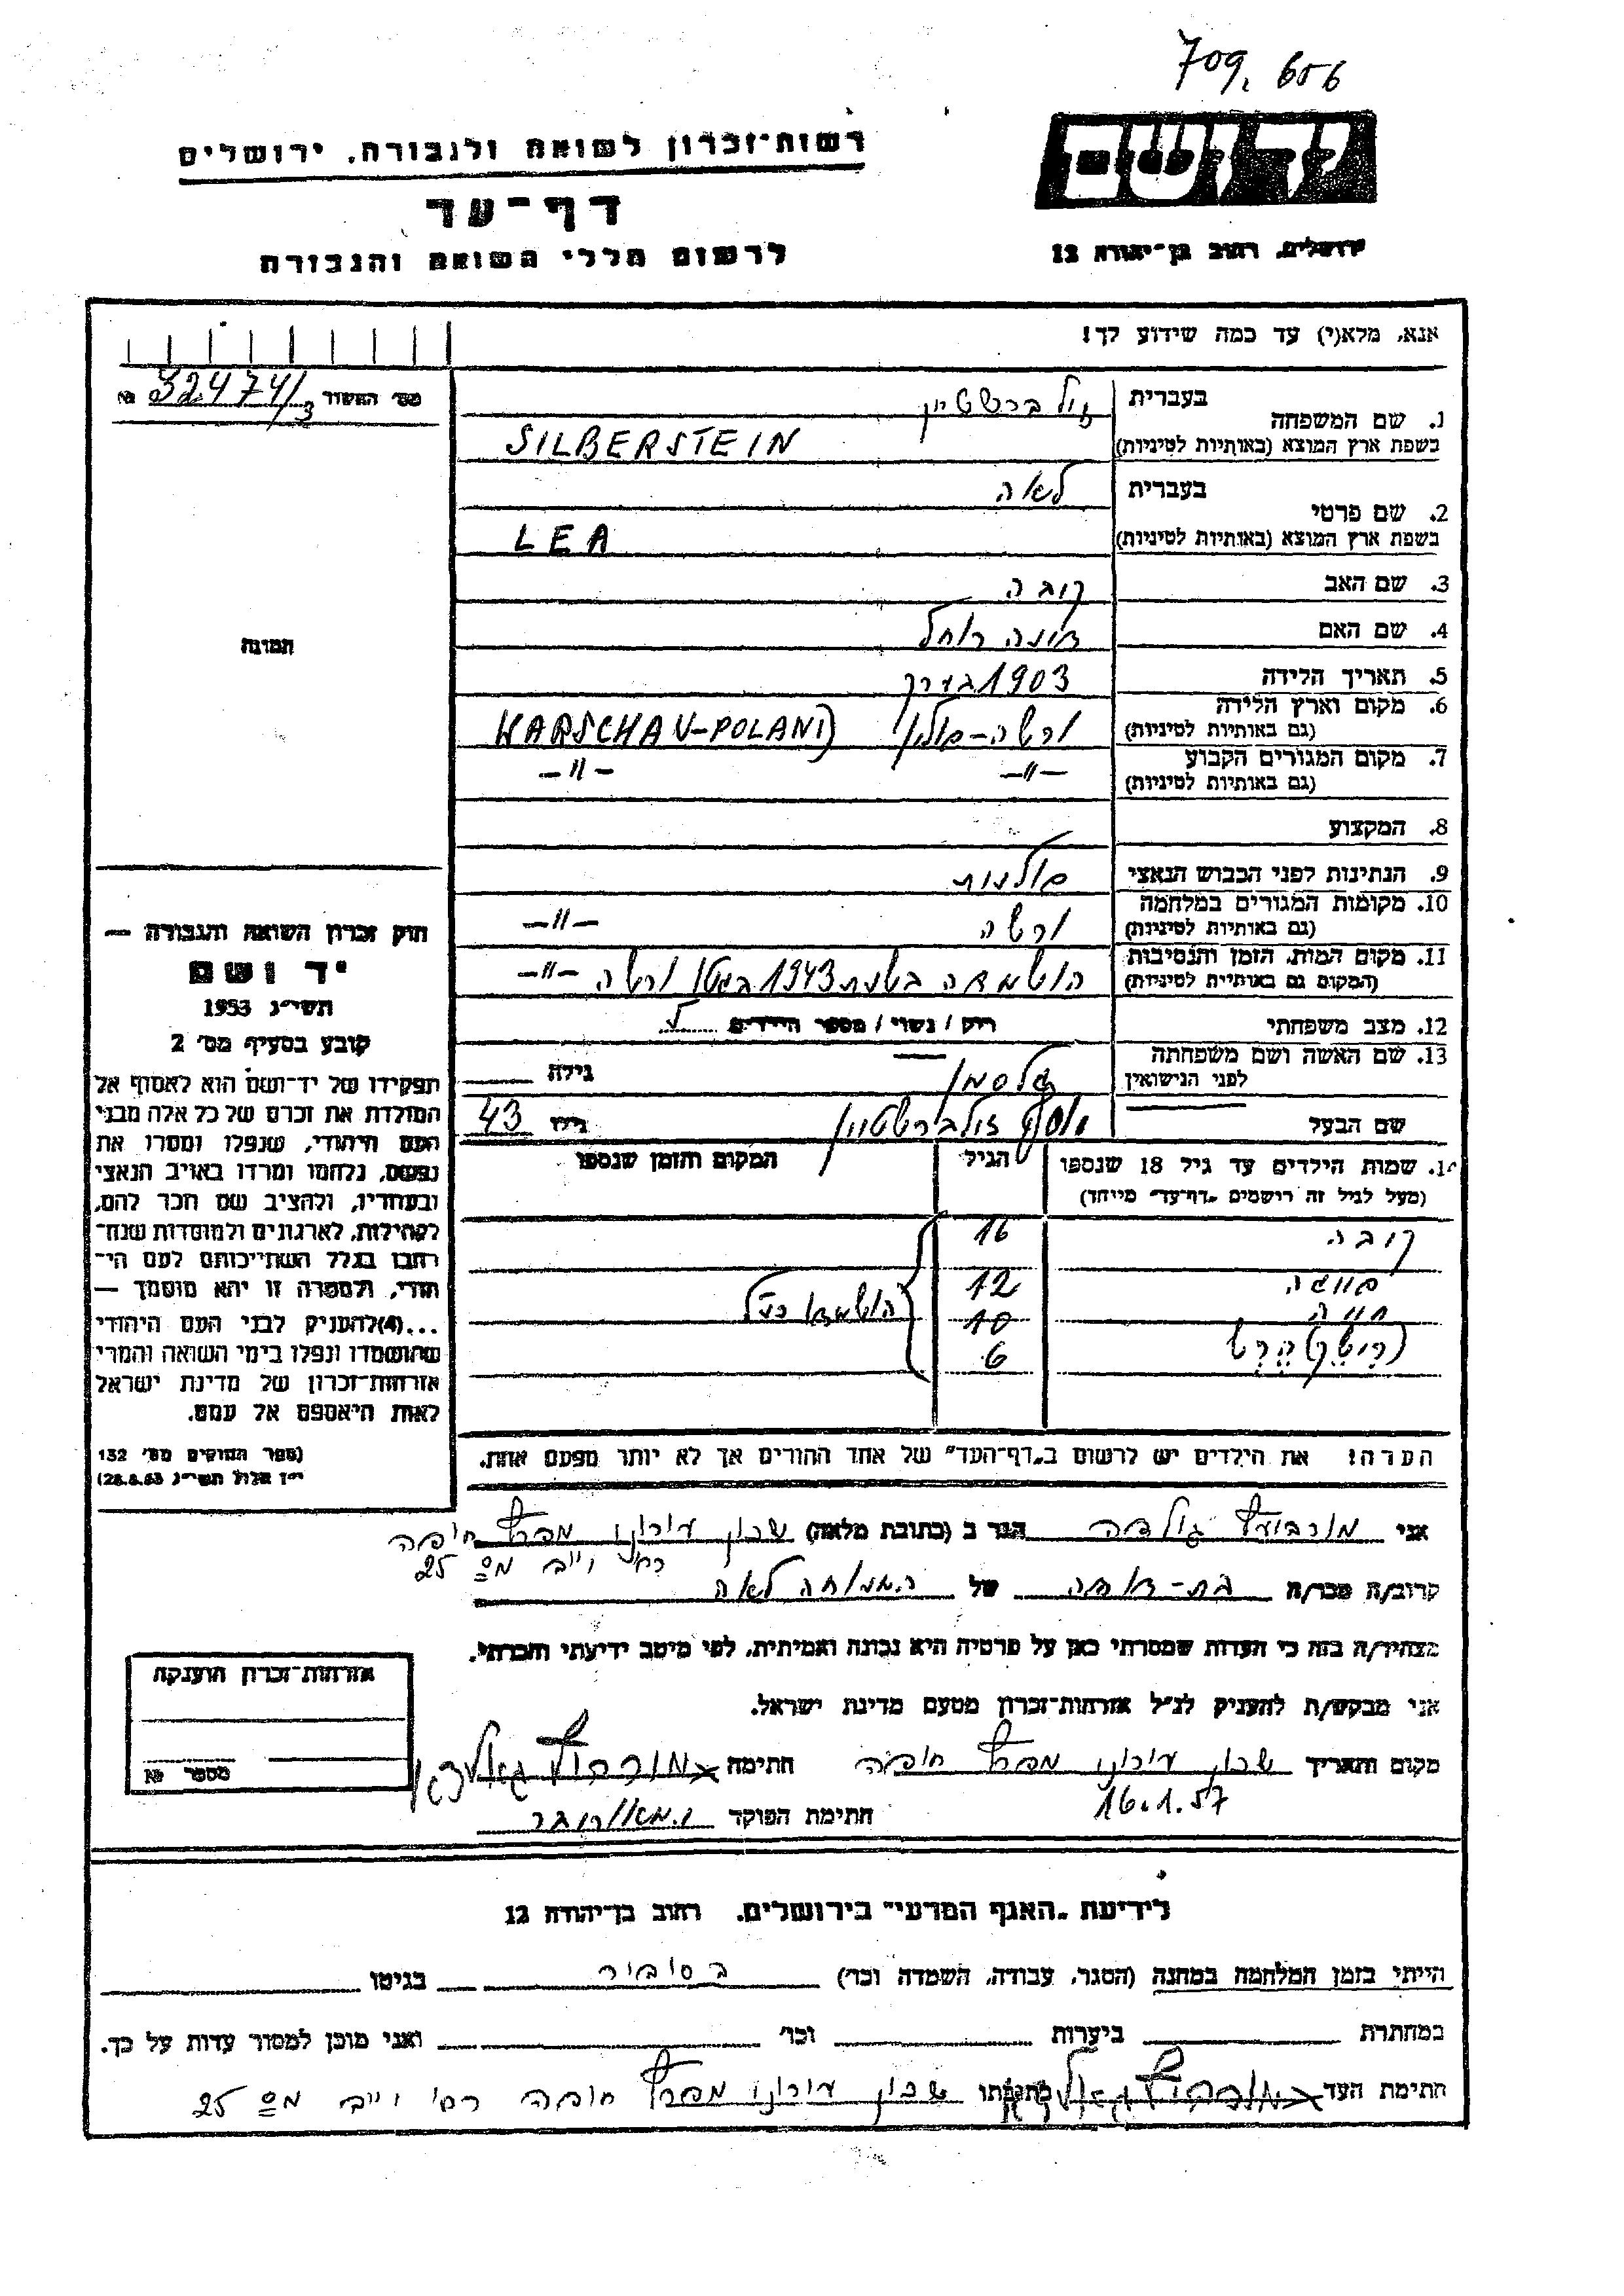 709,656
רשות-זכרון לשואה ולגבורה, ירושלים
יד ושם
דף-עד
ירושלים, רחוב בן-יהודה 12
לרשום חללי השואה והגבורה
אנא, מלא(י) עד כמה שידוע לך!
מס' האשור 32474/3 №
1. שם המשפחה בעברית זילברשטיין
בשפת ארץ המוצא (באותיות לטיניות) SILBERSTEIN
2. שם פרטי בעברית לאה
בשפת ארץ המוצא (באותיות לטיניות) LEA
3. שם האב קובה
4. שם האם רוחל
תמונה
5. תאריך הלידה 1903 בערך
6. מקום וארץ הלידה ורשה-פולין WARSCHAU-POLAND
(גם באותיות לטיניות)
7. מקום המגורים הקבוע -״- -״-
(גם באותיות לטיניות)
8. המקצוע
9. הנתינות לפני הכבוש הנאצי פולנית
10. מקומות המגורים במלחמה ורשה -״-
(גם באותיות לטיניות)
11. מקום המות, הזמן והנסיבות הושמדה בשנת 1943 בגטו ורשה -״-
(המקום גם באותיות לטיניות)
12. מצב משפחתי רווק / נשוי / מספר הילדים
13. שם האשה ושם משפחתה גילה
לפני הנישואין
שם הבעל יוסף זילברשטיין גילו 43
14. שמות הילדים עד גיל 18 שנספו הגיל המקום והזמן שנספו
(מעל לגיל זה רושמים "דף-עד" מייחד)
קובה 16
12
חווה 10 הושמדו כנ"ל
הרש 6
הערה! את הילדים יש לרשום ב"דף-העד" של אחד ההורים אך לא יותר מפעם אחת.
חוק זכרון השואה והגבורה —
יד ושם
תשי"ג 1953
קובע בסעיף מס' 2
תפקידו של יד-ושם הוא לאסוף אל
המולדת את זכרם של כל אלה מבני
העם היהודי, שנפלו ומסרו את
נפשם, נלחמו ומרדו באויב הנאצי
ובעוזריו, ולהציב שם וזכר להם,
לקהילות, לארגונים ולמוסדות שנח-
רבו בגלל השתייכותם לעם הי-
הודי, ולמטרה זו יהא מוסמך —
...(4)להעניק לבני העם היהודי
שהושמדו ונפלו בימי השואה והמרי
אזרחות-זכרון של מדינת ישראל
לאות היאספם אל עמם.
(ספר החוקים מס' 132
י"ז אלול תשי"ג 28.8.53)
אני גולדה הגר ב (כתובת מלאה) שכון עירוני מפרץ חיפה
רח' וייב מס 25
קרוב/ה מכר/ה בת-דודה של המנוחה לאה
מצהיר/ה בזה כי העדות שמסרתי כאן על פרטיה היא נכונה ואמיתית, לפי מיטב ידיעתי והכרתי.
אני מבקש/ת להעניק לנ"ל אזרחות-זכרון מטעם מדינת ישראל.
מקום ותאריך שכון עירוני מפרץ חיפה חתימה
16.1.57
חתימת הפוקד
אזרחות-זכרון הוענקה
מספר №
לידיעת "האגף המדעי" בירושלים, רחוב בן-יהודה 12
הייתי בזמן המלחמה במחנה (הסגר, עבודה, השמדה וכו') בסיביר בגיטו
במחתרת ביערות וכו' ואני מוכן למסור עדות על כך.
חתימת העד כתובתו שכון עירוני מפרץ חיפה רח' וייב מס 25